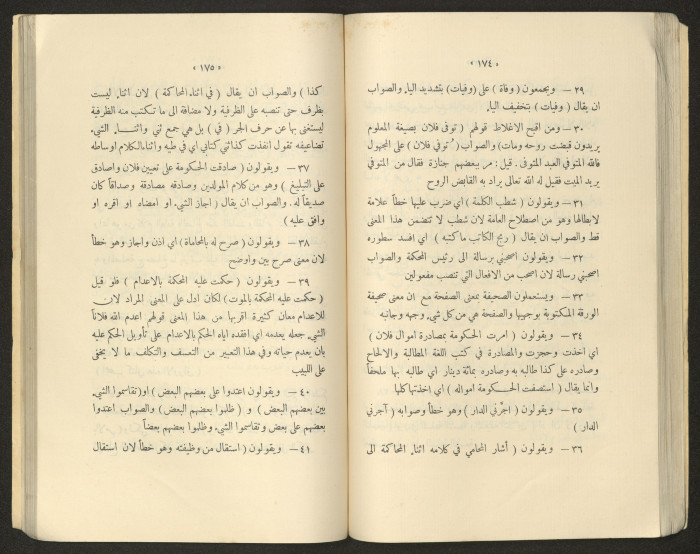 « ١٧٤ »
٢٩ – ويجمعون ( وفاة ) على ( وفيات ) بتشديد الياء والصواب
ان يقال ( وفيات ) بتخفيف الياء
٣٠ – ومن اقبح الاغلاط قولهم ( توفى فلان بصيغة المعلوم
يريدون قبضت روحه ومات ) والصواب ( تُوفي فلان ) على المجهول
فالله المتوفي العبد المتوفى . قيل : مر ببعضهم جنازة فقال من المتوفي
يريد الميت فقيل له الله تعالى يراد به القابض الروح
٣١ – ويقولون ( شطب الكلمة ) اي ضرب عليها خطاً علامة
لابطالها وهو من اصطلاح العامة لان شطب لا تتضمن هذا المعنى
قط والصواب ان يقال ( رمج الكاتب ما كتبه ) اي افسد سطوره
٣٢ – ويقولون اصحبني برسالة الى رئيس المحكمة والصواب
اصحبني رسالة لان اصحب من الافعال التي تنصب مفعولين
٣٣ – ويستعملون الصحيفة بمعنى الصفحة مع ان معنى صحيفة
الورقة المكتوبة بوجهيها والصفحة هي من كل شيء وجهه وجانبه
٣٤ – ويقولون ( امرت الحكومة بمصادرة اموال فلان )
اي اخذت وحجزت والمصادرة في كتب اللغة المطالبة والالحاح
وصادره على كذا طالبه به وصادره بمائة دينار اي طالبه بها ملحفاً
وانما يقال ( استصفت الحكومة امواله ) اي اخذتها كلها
٣٥ – ويقولون ( اجّرني الدار ) وهو خطأ وصوابه ( آجرني
الدار )
٣٦ – ويقولون ( أشار المحامي في كلامه اثناء المحاكمة الى
« ١٧٥ »
كذا ) والصواب ان يقال ( في اثناء المحاكمة ) لان اثناء ليست
بظرف حتى تنصبه على الظرفية ولا مضافة الى ما تكتسب منه الظرفية
ليستغنى بها عن حرف الجر ( في ) بل هي جمع ثني واثناء الشيء
تضاعيفه تقول انفذت كذا ثني كتابي اي في طيه واثناء الكلام اوساطه
٣٧ – ويقولون ( صادقت الحكومة على تعيين فلان واصادق
على التبليغ ) وهو من كلام المولدين وصادقه مصادقة وصداقاً كان
صديقاً له . والصواب ان يقال ( اجاز الشيء او امضاه او اقره او
وافق عليه )
٣٨ – ويقولون ( صرح له بالمحاماة ) اي اذن واجاز وهو خطأ
لان معنى صرح بين واوضح
٣٩ – ويقولون ( حكمت عليه المحكمة بالاعدام ) فلو قيل
( حكمت عليه المحكمة بالموت ) لكان ادل على المعنى المراد لان
للاعدام معان كثيرة اقربها من هذا المعنى قولهم اعدم الله فلاناً
الشيء جعله يعدمه اي افقده اياه الحكم بالاعدام على تأويل الحكم عليه
بان يعدم حياته وفي هذا التعبير من التعسف والتكلف ما لا يخفى
على اللبيب
٤٠ – ويقولون اعتدوا على بعضهم البعض ) او ( تقاسموا الشيء
بين بعضهم البعض ) و ( ظلموا بعضهم البعض ) والصواب اعتدوا
بعضهم على بعض وتقاسموا الشيء وظلموا بعضهم بعضاً
٤١ – ويقولون ( استقال من وظيفته وهو خطأ لان استقال